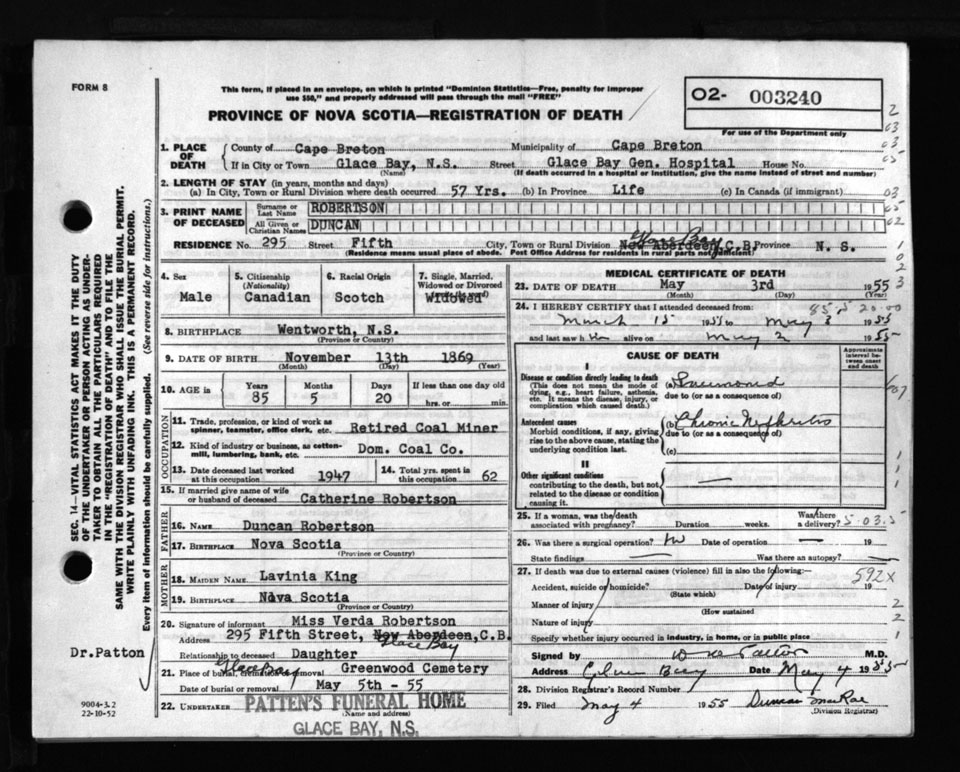 FORM 8
This form, if placed in an envelope, on which is printed "Dominion Statistics—Free, penalty for improper
use $50," and properly addressed will pass through the mail "FREE"
O2- 003240
For use of the Department only
PROVINCE OF NOVA SCOTIA—REGISTRATION OF DEATH
1. PLACE OF DEATH
County of Cape Breton Municipality of Cape Breton
If in City or Town Glace Bay, N.S. Street Glace Bay Gen. Hospital House No.
(Name) (If death occurred in a hospital or institution, give the name instead of street and number)
2. LENGTH OF STAY (in years, months and days)
(a) In City, Town or Rural Division where death occurred 57 Yrs. (b) In Province Life (c) In Canada (if immigrant)
3. PRINT NAME OF DECEASED
Surname or Last Name ROBERTSON
All Given or Christian Names DUNCAN
RESIDENCE No. 295 Street Fifth City, Town or Rural Division New Aberdeen, C.B. Glace Bay Province N. S.
(Residence means usual place of abode. Post Office Address for residents in rural parts not sufficient)
4. Sex
Male
5. Citizenship (Nationality)
Canadian
6. Racial Origin
Scotch
7. Single, Married, Widowed or Divorced
Widowed
8. BIRTHPLACE Wentworth, N.S.
(Province or Country)
9. DATE OF BIRTH November 13th 1869
(Month) (Day) (Year)
10. AGE in Years Months Days If less than one day old
85 5 20 hrs. or min.
OCCUPATION
11. Trade, profession, or kind of work as spinner, teamster, office clerk, etc. Retired Coal Miner
12. Kind of industry or business, as cotten-mill, lumbering, bank, etc. Dom. Coal Co.
13. Date deceased last worked at this occupation 1947
14. Total yrs. spent in this occupation 62
15. If married give name of wife or husband of deceased Catherine Robertson
FATHER
16. NAME Duncan Robertson
17. BIRTHPLACE Nova Scotia
(Province or Country)
MOTHER
18. MAIDEN NAME Lavinia King
19. BIRTHPLACE Nova Scotia
(Province or Country)
20. Signature of informant Miss Verda Robertson
Address 295 Fifth Street, New Aberdeen, C.B.
Glace Bay
Relationship to deceased Daughter
21. Place of burial, cremation or removal Glace Bay Greenwood Cemetery
Date of burial or removal May 5th - 55
22. UNDERTAKER PATTEN'S FUNERAL HOME
(Name and address)
GLACE BAY, N.S.
MEDICAL CERTIFICATE OF DEATH
23. DATE OF DEATH May 3rd 1955
(Month) (Day) (Year)
24. I HEREBY CERTIFY that I attended deceased from:
March 15 1955 to May 3 1955
and last saw him alive on May 2 1955
CAUSE OF DEATH
Approximate interval between onset and death
I
Disease or condition directly leading to death
(This does not mean the mode of dying, e.g., heart failure, asthenia, etc. It means the disease, injury, or complication which caused death.)
(a) Pneumonia
due to (or as a consequence of)
Antecedent causes
Morbid conditions, if any, giving rise to the above cause, stating the underlying condition last.
(b) Chronic Nephritis
due to (or as a consequence of)
(c)
II
Other significant conditions
contributing to the death, but not related to the disease or condition causing it.
25. If a woman, was the death associated with pregnancy? Duration weeks. Was there a delivery?
26. Was there a surgical operation? No Date of operation — 19
State findings — Was there an autopsy? —
27. If death was due to external causes (violence) fill in also the following:—
592X
Accident, suicide or homicide? Date of injury 19
(State which)
Manner of injury
(How sustained
Nature of injury
Specify whether injury occurred in industry, in home, or in public place
Signed by Patton M.D.
Address Glace Bay Date May 4 1955
28. Division Registrar's Record Number
29. Filed May 4 1955 Duncan MacRae
(Division Registrar)
SEC. 14—VITAL STATISTICS ACT MAKES IT THE DUTY
OF THE UNDERTAKER OR PERSON ACTING AS UNDER-
TAKER TO OBTAIN ALL THE PARTICULARS REQUIRED
IN THE "REGISTRATION OF DEATH" AND TO FILE THE
SAME WITH THE DIVISION REGISTRAR WHO SHALL ISSUE THE BURIAL PERMIT.
WRITE PLAINLY WITH UNFADING INK. THIS IS A PERMANENT RECORD.
Every item of information should be carefully supplied. (See reverse side for instructions.)
Dr.Patton
9004-3.2
22-10-52